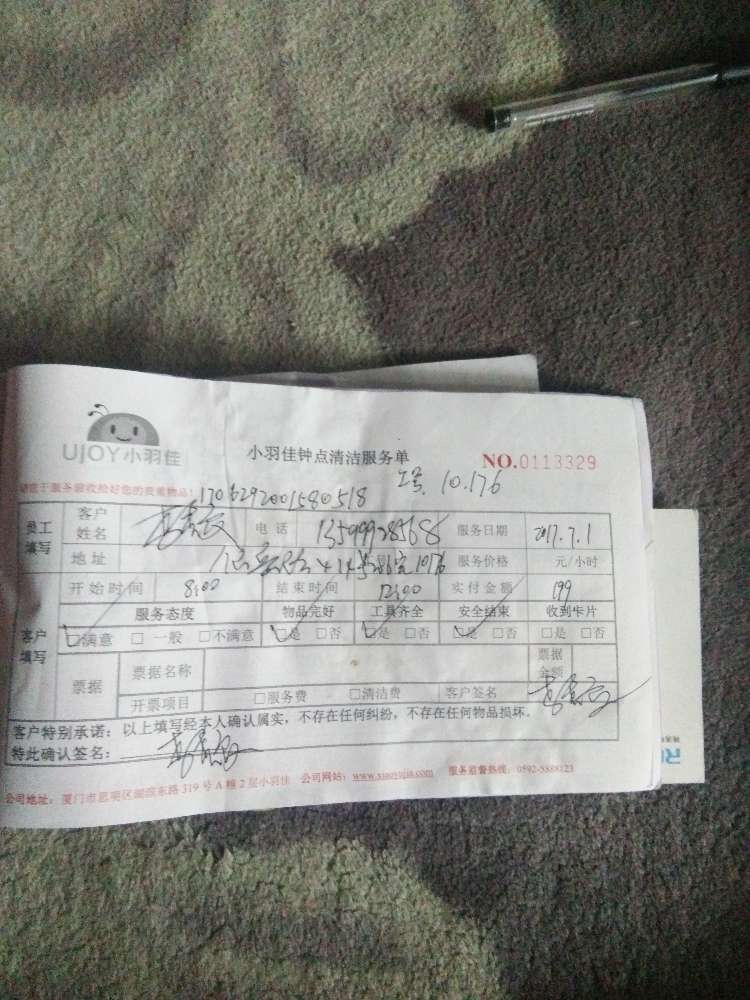 UJOY小羽佳
小羽佳钟点清洁服务单
NO.0113329
1706292001580518
10.176
员工填写
客户姓名
电话
服务日期 2017.7.1
地址
服务价格 元/小时
开始时间 8:00 结束时间 12:00 实付金额 199
客户填写
服务态度 物品完好 工具齐全 安全结束 收到卡片
☑满意 □一般 □不满意 ☑是 □否 ☑是 □否 ☑是 □否 □是 □否
票据 票据名称 票据金额
开票项目 □服务费 □清洁费 客户签名
客户特别承诺：以上填写经本人确认属实，不存在任何纠纷，不存在任何物品损坏．
特此确认签名：
公司地址：厦门市思明区湖滨东路319号A幢2层小羽佳 公司网站：www.xiaoyujia.com 服务监督热线：0592-5888123